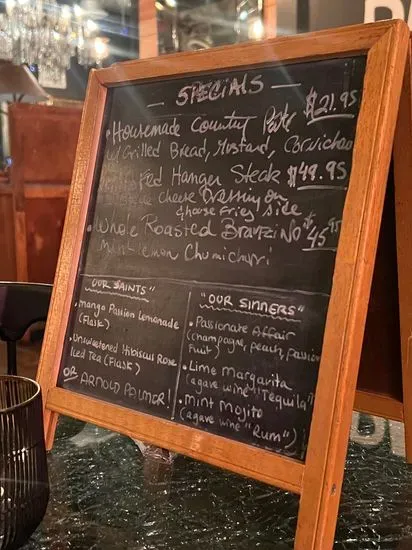 — SPECIALS —
• Housemade Country Pate $21.95
w/ Grilled Bread, Mustard, Cornichon
Fed Hanger Steak $49.95
cheese Dressing on
& house fries side
• Whole Roasted Branzino $45.95
Mint Lemon Chumichurri
"OUR SAINTS"
• mango Passion Lemonade
(Flask)
• Unsweetened Hibiscus Rose
Iced Tea (Flask)
OR ARNOLD PALMER!
"OUR SINNERS"
• Passionate Affair
(champagne, peach, passion
fruit)
• Lime Margarita
(agave wine "Tequila")
• mint Mojito
(agave wine "Rum")